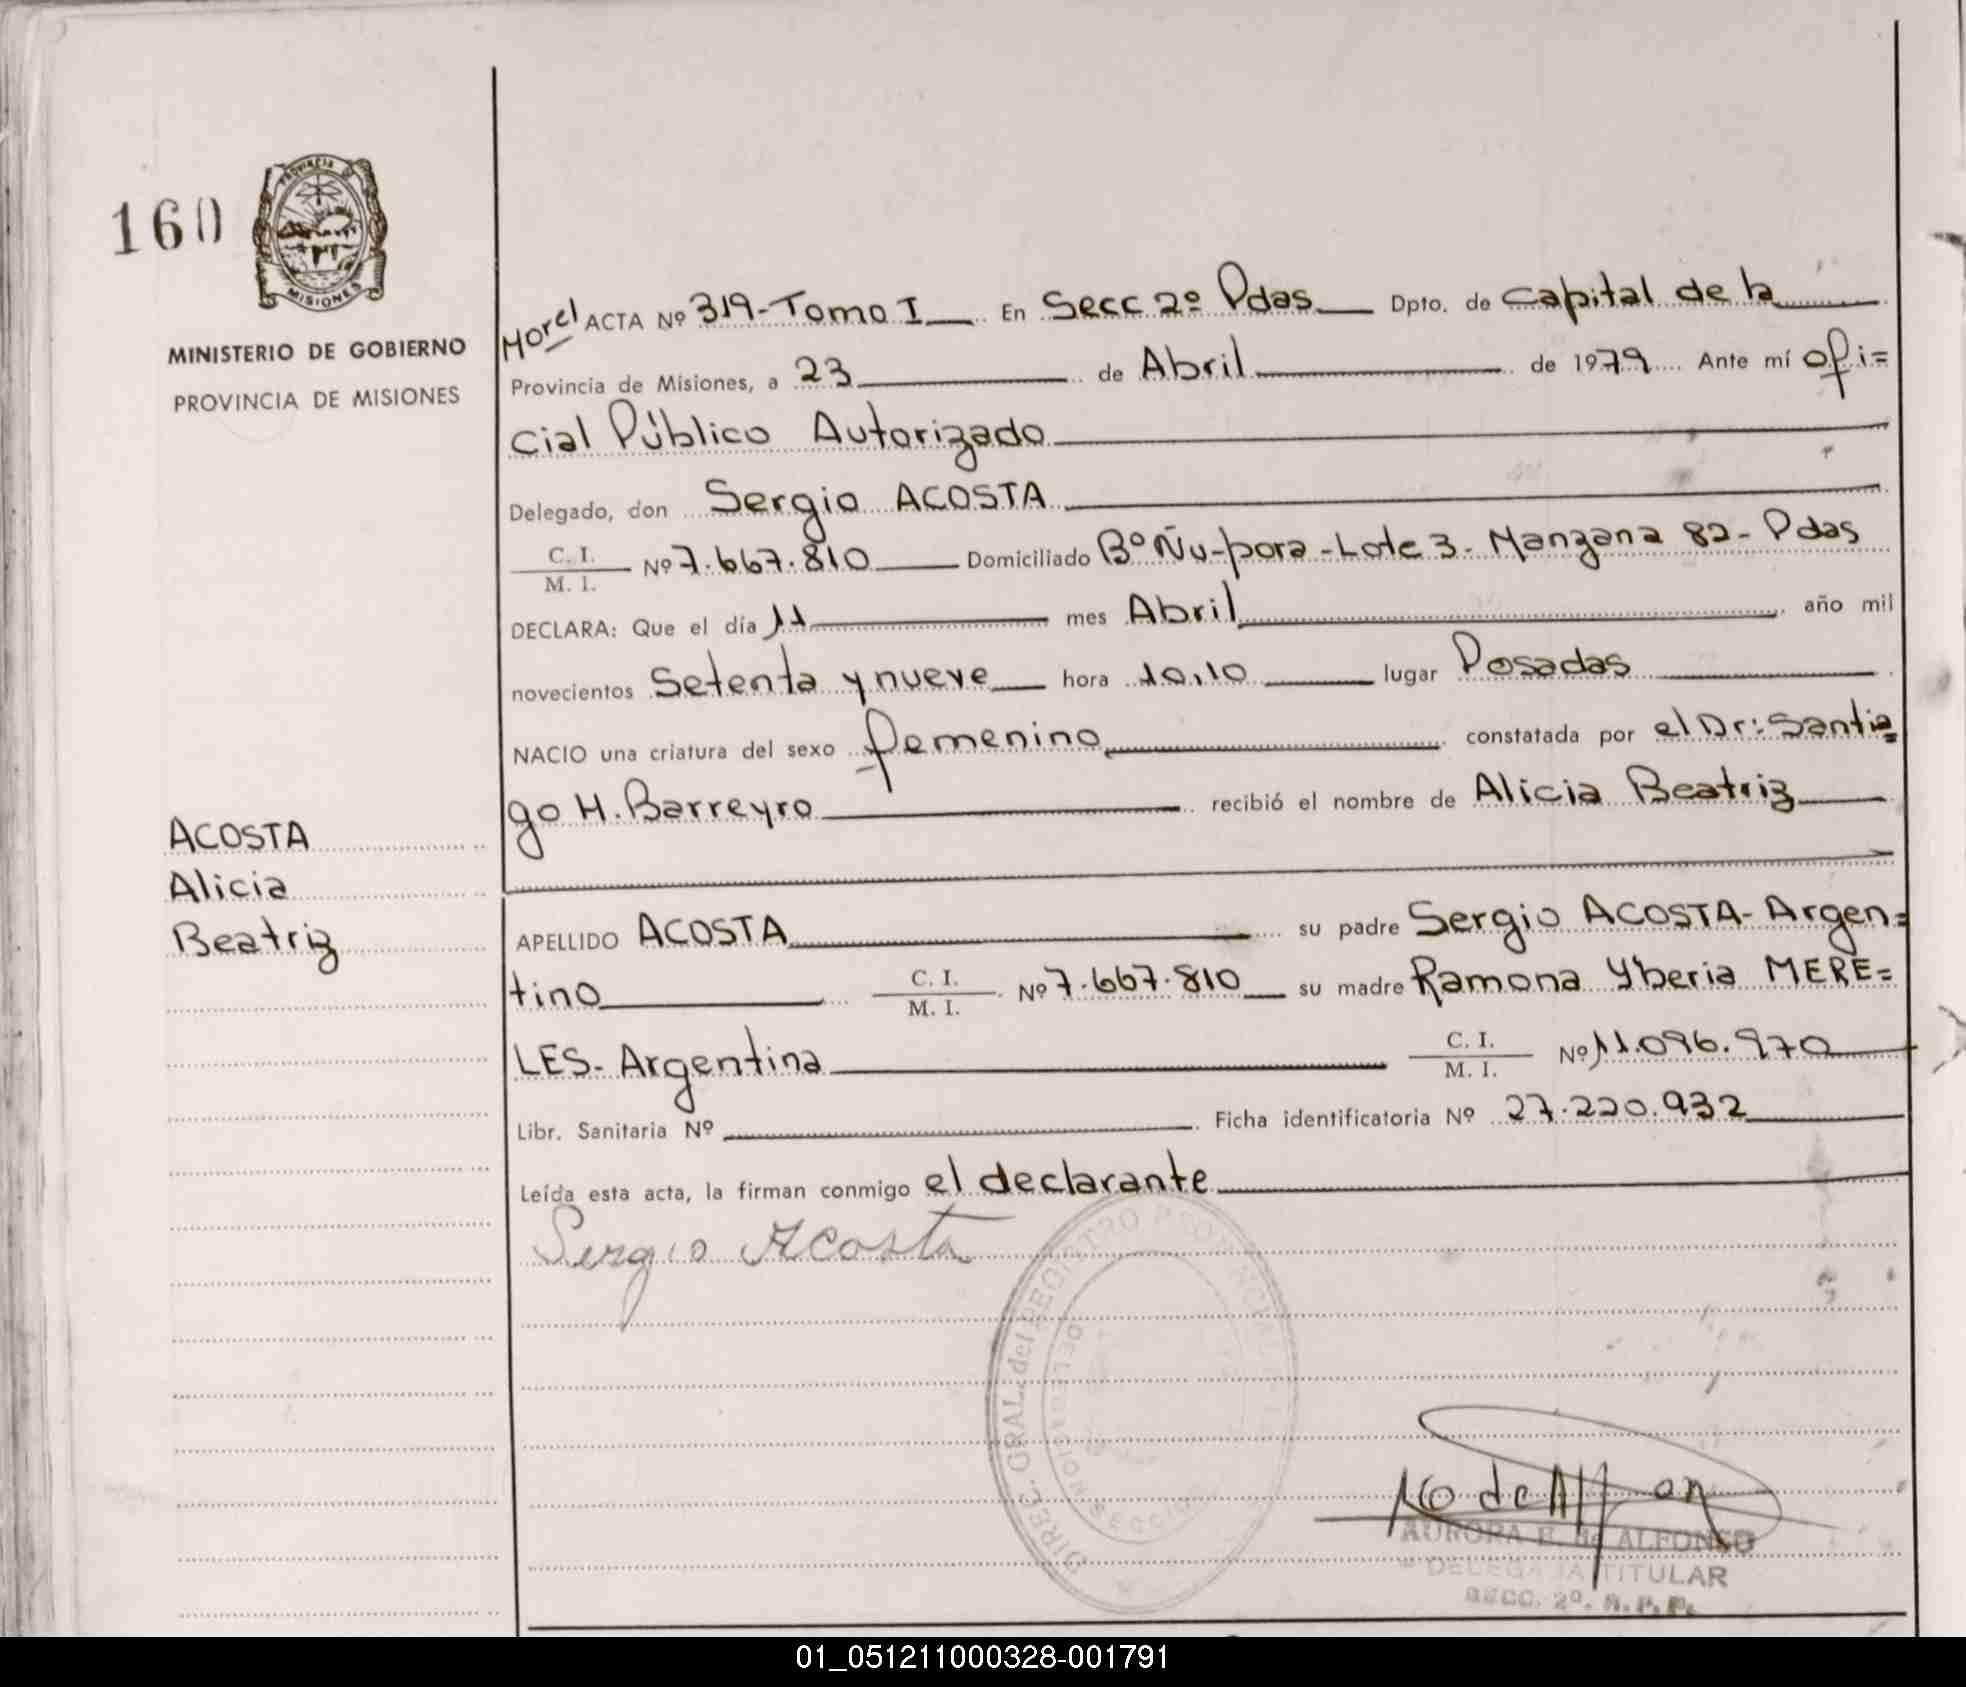 160
PROVINCIA
MISIONES
MINISTERIO DE GOBIERNO
PROVINCIA DE MISIONES
Morel ACTA Nº 319-Tomo I En Secc 2º Pdas Dpto. de Capital de la
Provincia de Misiones, a 23 de Abril de 1979 Ante mí ofi=
cial Público Autorizado
Delegado, don Sergio ACOSTA
C. I.
M. I. Nº 7.667.810 Domiciliado Bº Ñu-pora-Lote 3-Manzana 82-Pdas
DECLARA: Que el día 11 mes Abril año mil
novecientos Setenta y nueve hora 10,10 lugar Posadas
NACIO una criatura del sexo femenino constatada por el Dr: Santia=
go H. Barreyro recibió el nombre de Alicia Beatriz
ACOSTA
Alicia
Beatriz
APELLIDO ACOSTA su padre Sergio ACOSTA-Argen=
tino C. I.
M. I. Nº 7.667.810 su madre Ramona Yberia MERE=
LES-Argentina C. I.
M. I. Nº 11.096.970
Libr. Sanitaria Nº Ficha identificatoria Nº 27.220.932
Leída esta acta, la firman conmigo el declarante
Sergio Acosta
DIREC. GRAL. del REGISTRO PROVINCIAL
DELEGACION SECCION
AURORA E. de ALFONSO
DELEGADA TITULAR
SECC. 2º. R. P. P.
01_051211000328-001791